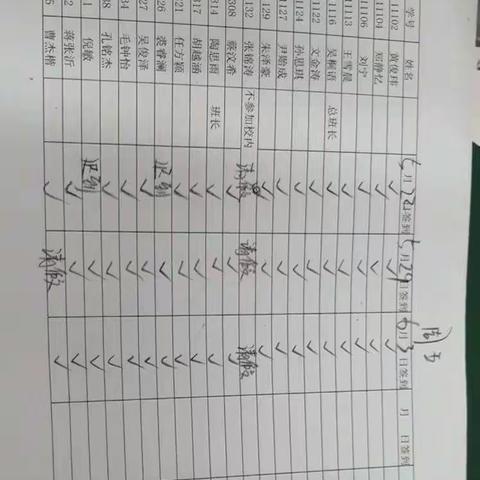 周五
学号 姓名 5月24日签到 5月29日签到 6月3日签到 月 日签到
11102 黄俊玮
11104 郑静忆
11106 刘宁
11113 王雪晨
1116 吴桐语 总班长
1122 文金涛
1124 孙思琪
127 尹贻成
129 朱泽豪
132 张锦涛 不参加校内 请假 请假 请假
308 蔡汶希
314 陶思雨 班长
317 胡越涵
21 任方颖
26 裘睿澜 迟到
27 吴俊泽
34 毛钟怡
38 孔铭杰
1 倪敏 迟到
2 蒋张沂
5 曹杰楷 请假